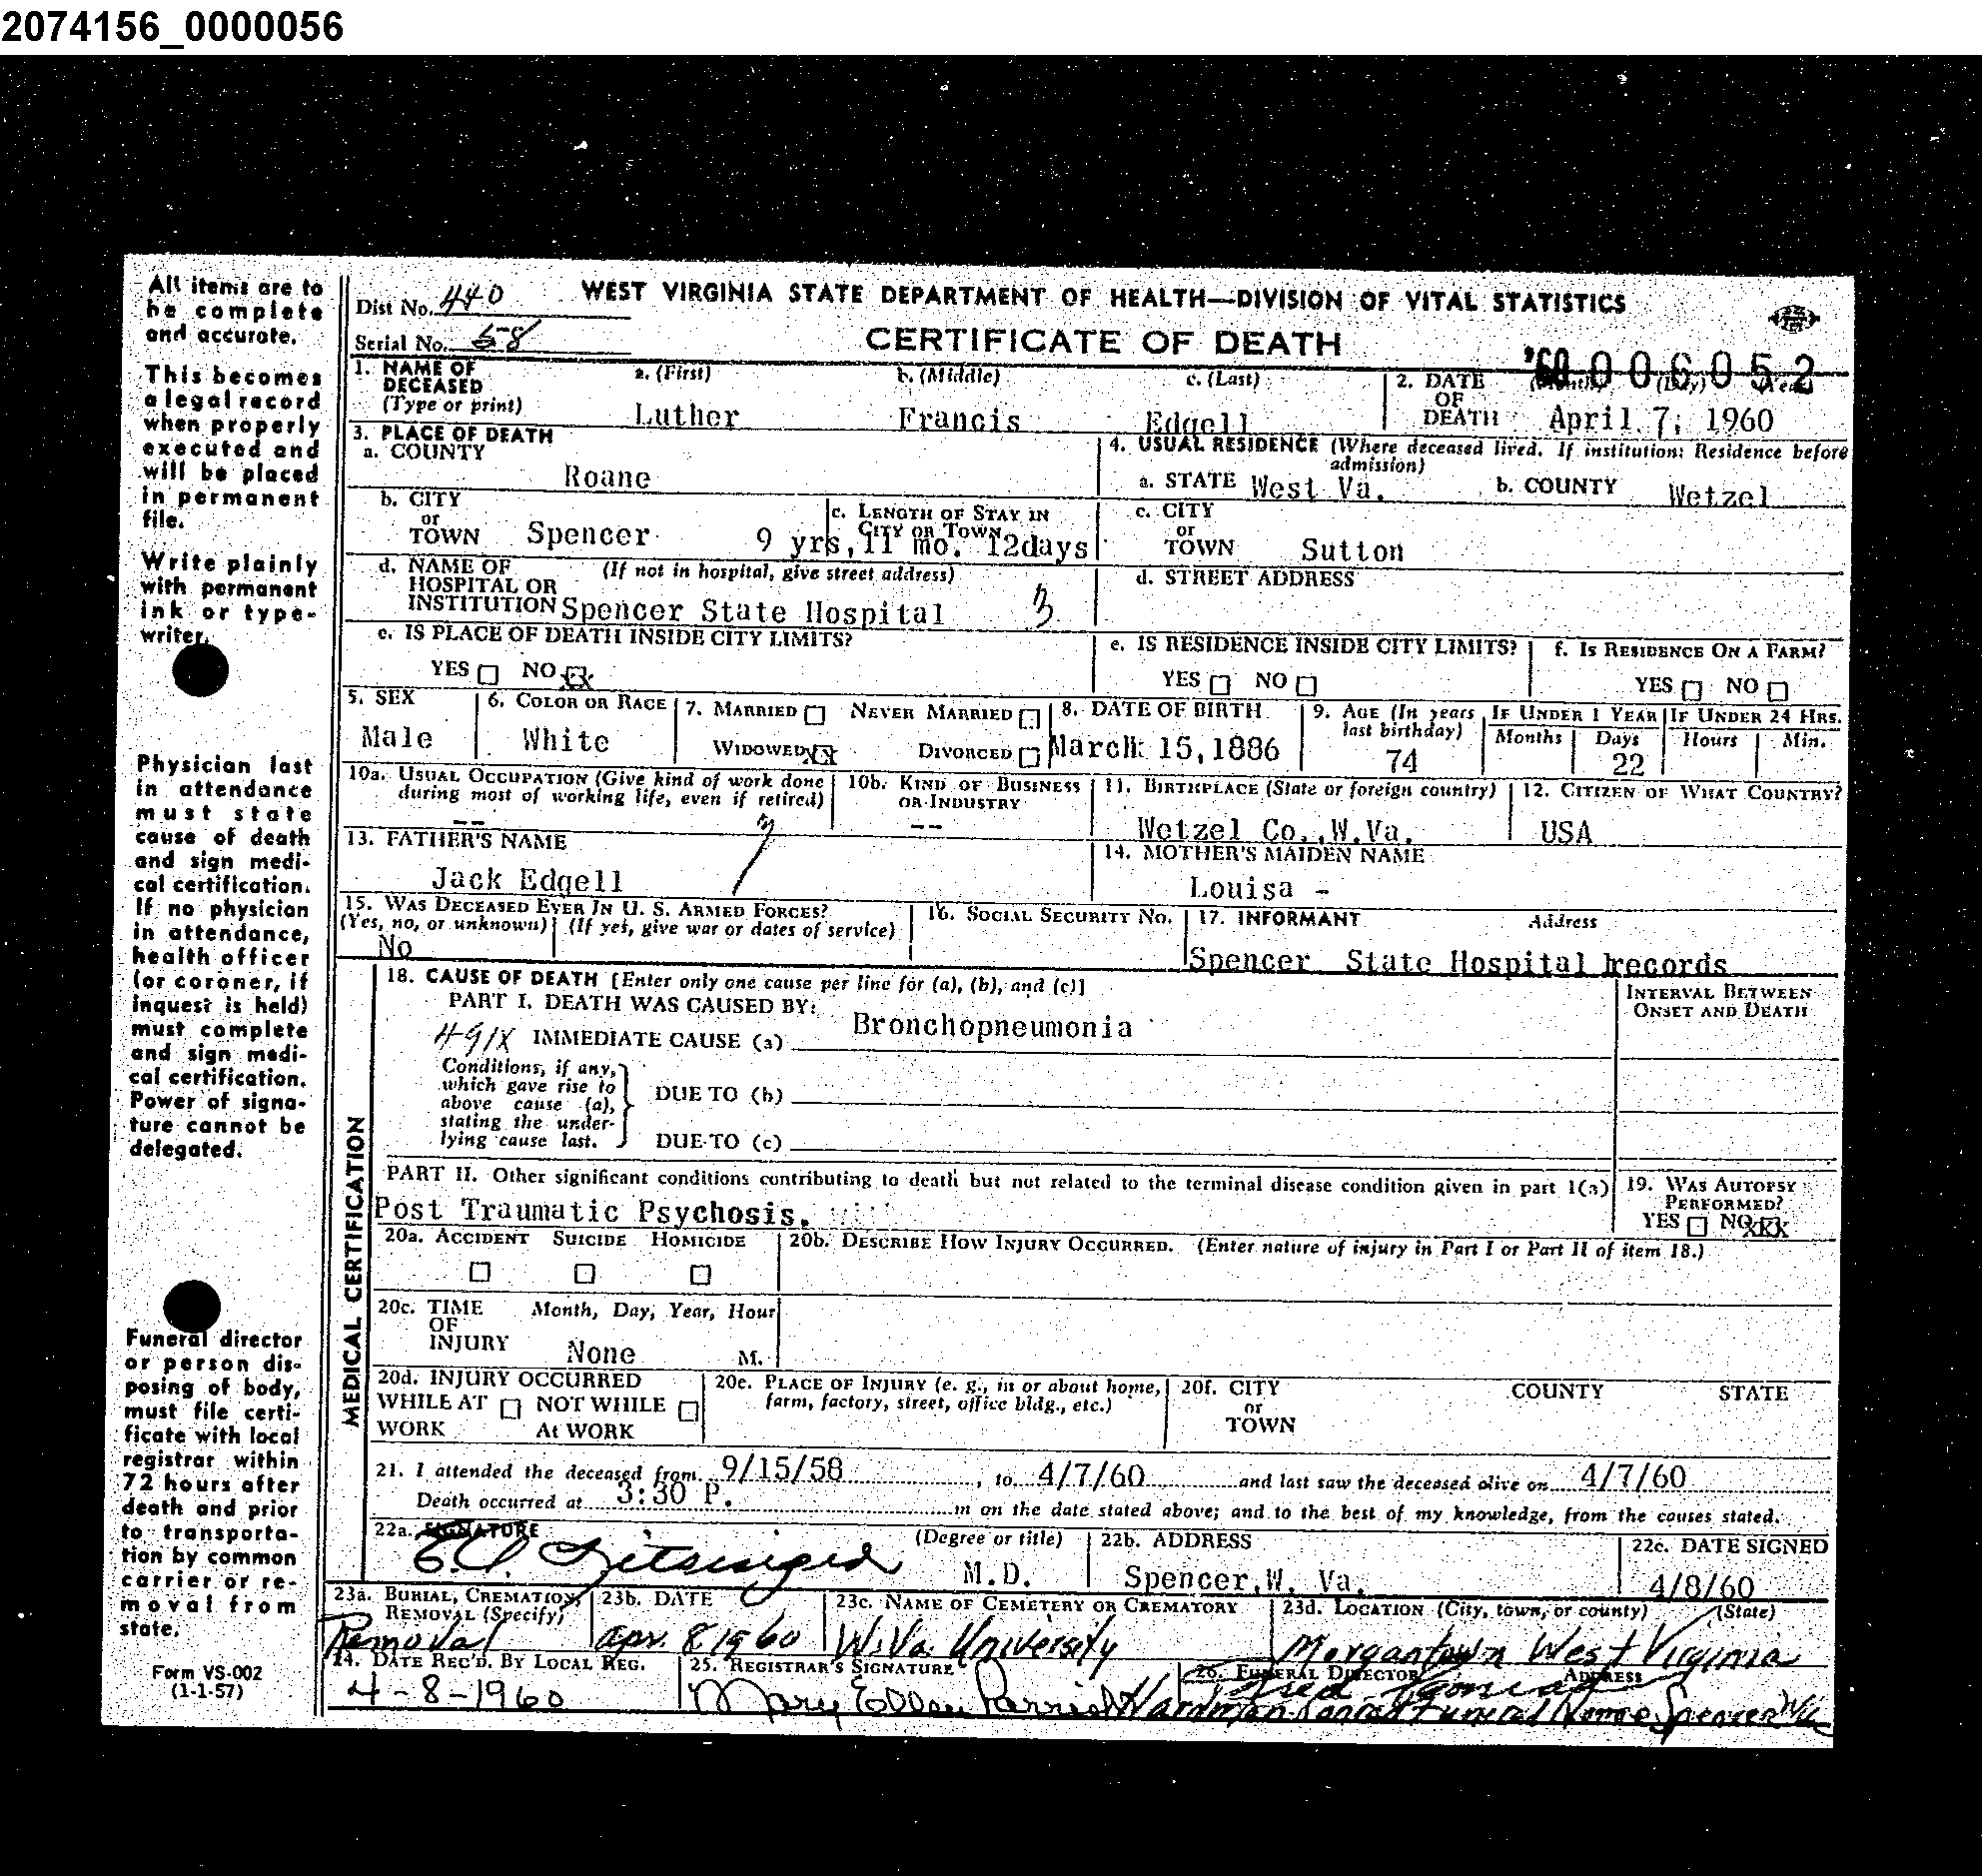 2074156_0000056
All items are to
be complete
and accurate.
This becomes
a legal record
when properly
executed and
will be placed
in permanent
file.
Write plainly
with permanent
ink or type-
writer.
Physician last
in attendance
must state
cause of death
and sign medi-
cal certification.
If no physician
in attendance,
health officer
(or coroner, if
inquest is held)
must complete
and sign medi-
cal certification.
Power of signa-
ture cannot be
delegated.
Funeral director
or person dis-
posing of body,
must file certi-
ficate with local
registrar within
72 hours after
death and prior
to transporta-
tion by common
carrier or re-
moval from
state.
Form VS-002
(1-1-57)
Dist No. 440
WEST VIRGINIA STATE DEPARTMENT OF HEALTH—DIVISION OF VITAL STATISTICS
Serial No. 58
CERTIFICATE OF DEATH
'60 006052
1. NAME OF DECEASED (Type or print) a. (First) b. (Middle) c. (Last) 2. DATE OF DEATH (Month) (Day) (Year)
Luther Francis Edgell April 7, 1960
3. PLACE OF DEATH
a. COUNTY Roane
4. USUAL RESIDENCE (Where deceased lived. If institution: Residence before admission)
a. STATE West Va. b. COUNTY Wetzel
b. CITY or TOWN Spencer c. LENGTH OF STAY IN CITY OR TOWN 9 yrs, 11 mo. 12days
c. CITY or TOWN Sutton
d. NAME OF HOSPITAL OR INSTITUTION (If not in hospital, give street address) Spencer State Hospital 3
d. STREET ADDRESS
e. IS PLACE OF DEATH INSIDE CITY LIMITS?
YES NO XX
e. IS RESIDENCE INSIDE CITY LIMITS?
YES NO
f. IS RESIDENCE ON A FARM?
YES NO
5. SEX Male
6. COLOR OR RACE White
7. MARRIED NEVER MARRIED
WIDOWED XX DIVORCED
8. DATE OF BIRTH March 15,1886
9. AGE (In years last birthday) 74
IF UNDER 1 YEAR Months Days 22
IF UNDER 24 HRS. Hours Min.
10a. USUAL OCCUPATION (Give kind of work done during most of working life, even if retired) --
10b. KIND OF BUSINESS OR INDUSTRY --
11. BIRTHPLACE (State or foreign country) Wetzel Co.,W.Va.
12. CITIZEN OF WHAT COUNTRY? USA
13. FATHER'S NAME Jack Edgell
14. MOTHER'S MAIDEN NAME Louisa -
15. WAS DECEASED EVER IN U. S. ARMED FORCES?
(Yes, no, or unknown) (If yes, give war or dates of service)
No
16. SOCIAL SECURITY NO.
17. INFORMANT Address
Spencer State Hospital records
MEDICAL CERTIFICATION
18. CAUSE OF DEATH [Enter only one cause per line for (a), (b), and (c)]
INTERVAL BETWEEN ONSET AND DEATH
PART I. DEATH WAS CAUSED BY:
491X IMMEDIATE CAUSE (a) Bronchopneumonia
Conditions, if any, which gave rise to above cause (a), stating the underlying cause last.
DUE TO (b)
DUE TO (c)
PART II. Other significant conditions contributing to death but not related to the terminal disease condition given in part 1(a)
Post Traumatic Psychosis.
19. WAS AUTOPSY PERFORMED?
YES NO XXX
20a. ACCIDENT SUICIDE HOMICIDE
20b. DESCRIBE HOW INJURY OCCURRED. (Enter nature of injury in Part I or Part II of item 18.)
20c. TIME OF INJURY Month, Day, Year, Hour
None M.
20d. INJURY OCCURRED
WHILE AT WORK NOT WHILE At WORK
20e. PLACE OF INJURY (e. g., in or about home, farm, factory, street, office bldg., etc.)
20f. CITY or TOWN COUNTY STATE
21. I attended the deceased from 9/15/58, to 4/7/60 and last saw the deceased alive on 4/7/60
Death occurred at 3:30 P. m on the date stated above; and to the best of my knowledge, from the causes stated.
22a. SIGNATURE (Degree or title) M.D.
22b. ADDRESS Spencer,W. Va.
22c. DATE SIGNED 4/8/60
23a. BURIAL, CREMATION, REMOVAL (Specify) Removal
23b. DATE Apr. 8 1960
23c. NAME OF CEMETERY OR CREMATORY W.Va. University
23d. LOCATION (City, town, or county) (State) Morgantown West Virginia
24. DATE REC'D. BY LOCAL REG. 4-8-1960
25. REGISTRAR'S SIGNATURE Mary Ellen Parrish
26. FUNERAL DIRECTOR ADDRESS
Funeral Home Spencer